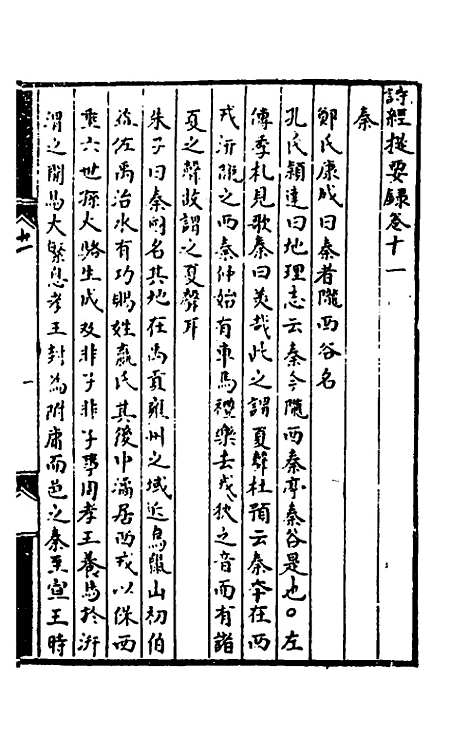 詩經提要録卷十一
秦
鄭氏康成曰秦者隴西谷名
孔氏穎達曰地理志云秦今隴西秦亭秦谷是也○左
傳季札見歌秦曰美哉此之謂夏聲杜預云秦本在西
戎汧隴之西秦仲始有車馬禮樂去戎狄之音而有諸
夏之聲故謂之夏聲耳
朱子曰秦國名其地在禹貢雍州之域近鳥鼠山初伯
益佐禹治水有功賜姓嬴氏其後中潏居西戎以保西
垂六世孫大駱生成及非子非子事周孝王養馬於汧
渭之間馬大繁息孝王封為附庸而邑之秦至宣王時